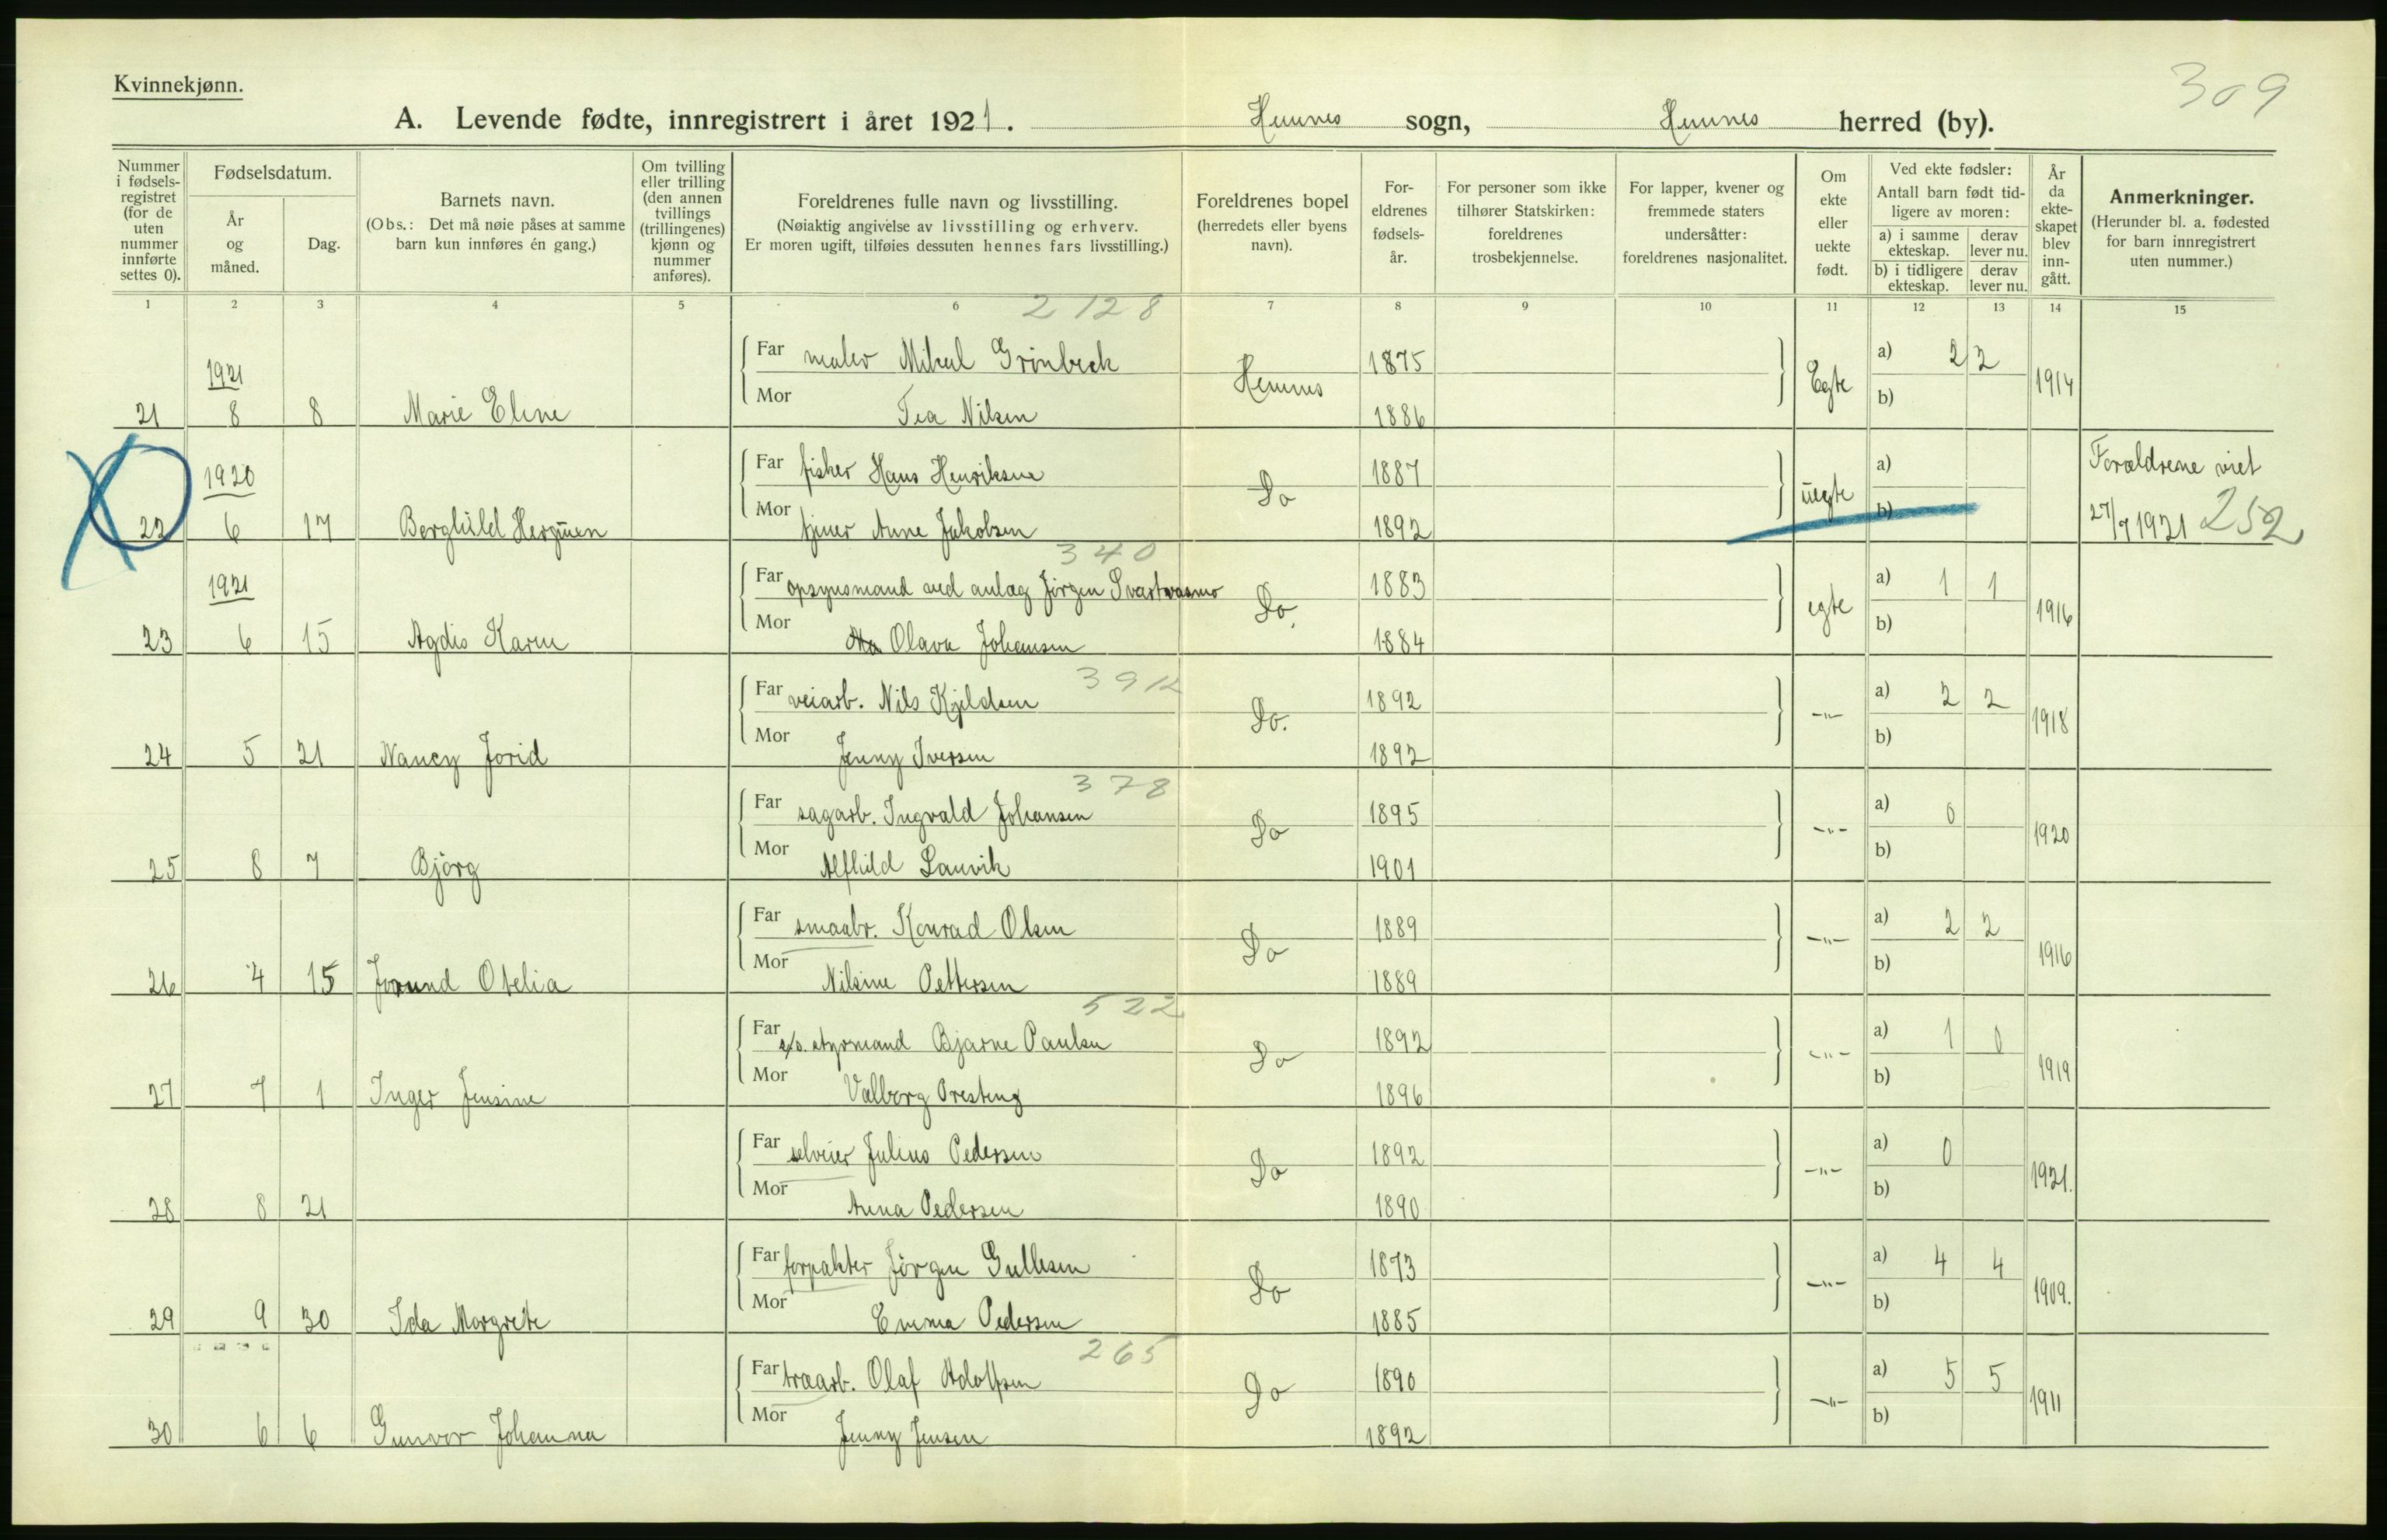 Kvinnekjønn.
309
A. Levende fødte, innregistrert i året 1921. Hemnes sogn, Hemnes herred (by).
Nummer i fødselsregistret (for de uten nummer innførte settes 0).
Fødselsdatum.
År og måned.
Dag.
Barnets navn.
(Obs.: Det må nøie påses at samme barn kun innføres én gang.)
Om tvilling eller trilling (den annen tvillings (trillingenes) kjønn og nummer anføres).
Foreldrenes fulle navn og livsstilling.
(Nøiaktig angivelse av livsstilling og erhverv.
Er moren ugift, tilføies dessuten hennes fars livsstilling.)
Foreldrenes bopel
(herredets eller byens navn).
Foreldrenes fødselsår.
For personer som ikke tilhører Statskirken: foreldrenes trosbekjennelse.
For lapper, kvener og fremmede staters undersåtter: foreldrenes nasjonalitet.
Om ekte eller uekte født.
Ved ekte fødsler:
Antall barn født tidligere av moren:
a) i samme ekteskap.
derav lever nu.
b) i tidligere ekteskap.
derav lever nu.
År da ekteskapet blev inngått.
Anmerkninger.
(Herunder bl. a. fødested for barn innregistrert uten nummer.)
1 2 3 4 5 6 7 8 9 10 11 12 13 14 15
2128
Far maler Mikal Grönbeck 1875 a) 2 2
1921 Hemnes Egte 1914
21 8 8 Marie Eline Mor Tea Nilsen 1886 b)
Far fisker Hans Henriksen 1887 a) Forældrene viet
1920 Do uegte
22 6 17 Berghild Mor tjener Anne Jakobsen 1892 b) 27/7 1921 252
340
Far opsynsmand ved anlæg Jörgen Svartvasmo 1883 a) 1 1
1921 Do. egte 1916
23 6 15 Agdis Karin Mor Olava Johansen 1884 b)
391
Far veiarb. Nils Kjeldsen 1892 a) 2 2
Do. -"- 1918
24 5 21 Nancy Jorid Mor Jenny Iversen 1892 b)
378
Far sagarb. Ingvald Johansen 1895 a) 0
Do -"- 1920
25 8 7 Björg Mor Alfhild Lauvik 1901 b)
Far smaabr. Konrad Olsen 1889 a) 2 2
Do -"- 1916
26 4 15 Jorund Otelia Mor Nilsine Pettersen 1889 b)
522
Far styrmand Bjarne Paulsen 1892 a) 1 0
Do -"- 1919
27 7 1 Inger Jensine Mor Valborg Presteng 1896 b)
Far selveier Julius Pedersen 1892 a) 0
Do -"- 1921.
28 8 21 Mor Anna Pedersen 1890 b)
Far forpakter Jörgen Gullesen 1873 a) 4 4
Do -"- 1909.
29 9 30 Ida Margrete Mor Emma Pedersen 1885 b)
265
Far træarb. Olaf Adolfsen 1890 a) 5 5
Do -"- 1911
30 6 6 Gunvor Johanna Mor Jenny Jensen 1892 b)